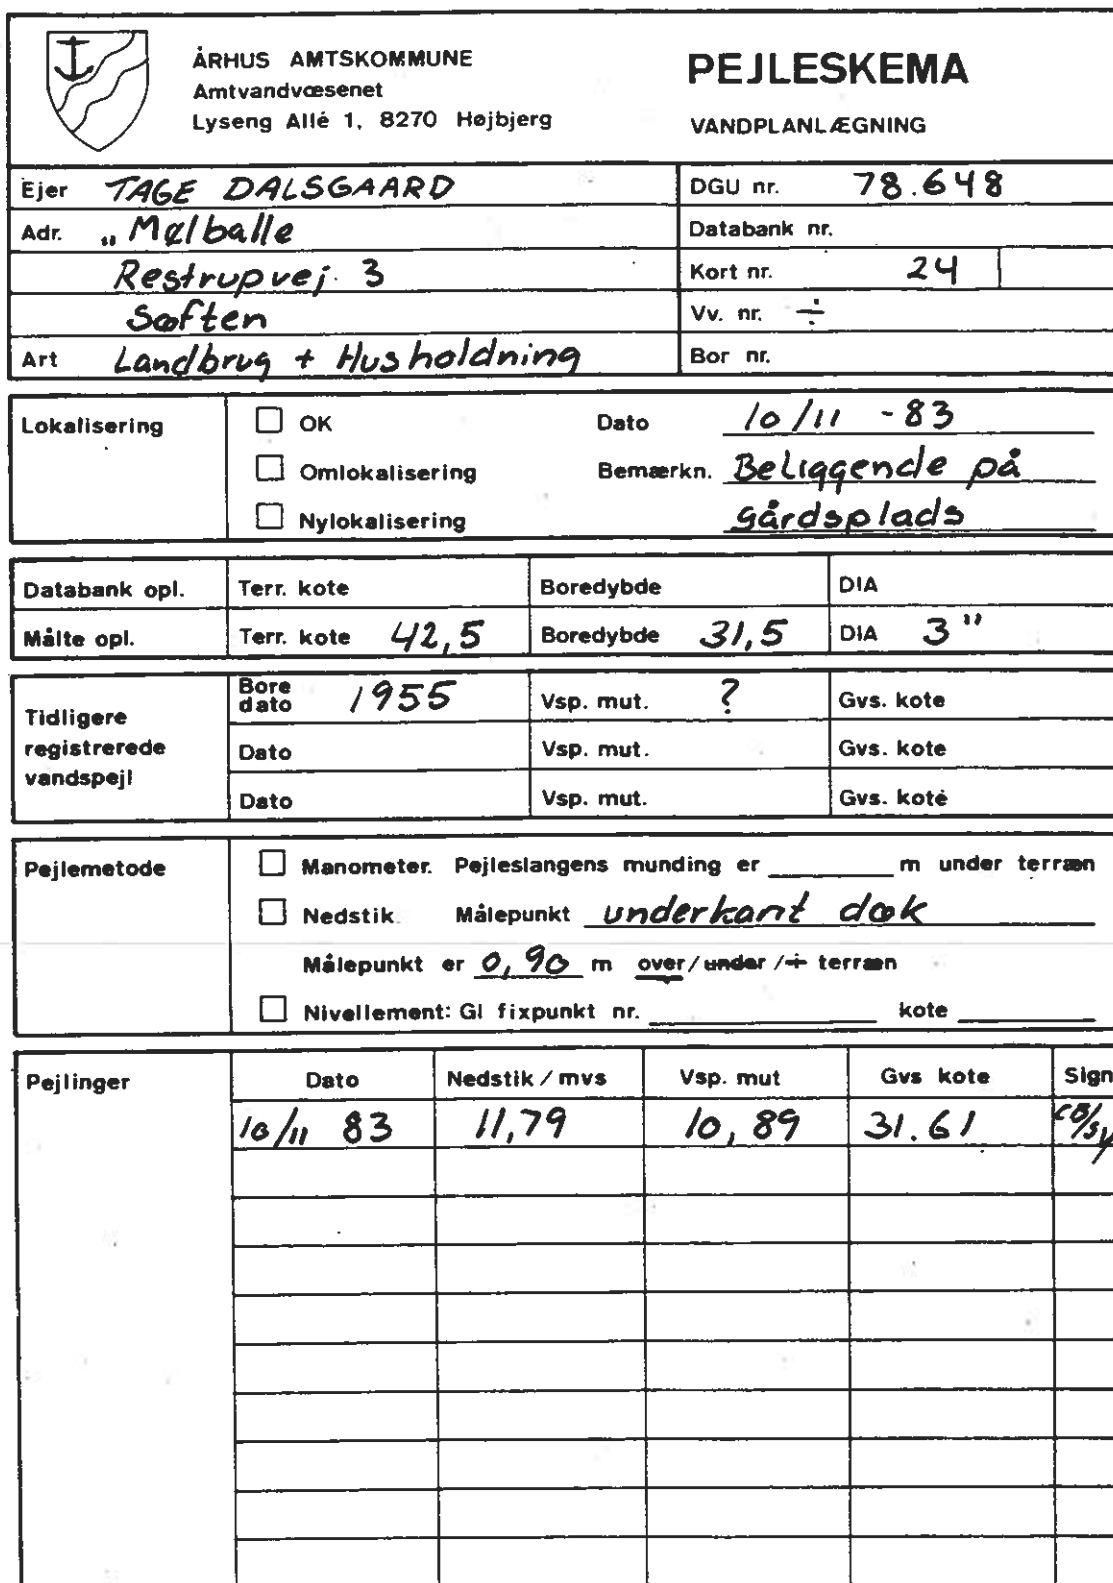 ÅRHUS AMTSKOMMUNE
Amtvandvæsenet
Lyseng Allé 1, 8270 Højbjerg
PEJLESKEMA
VANDPLANLÆGNING
Ejer TAGE DALSGAARD
DGU nr. 78.648
Adr. „Mølballe
Databank nr.
Restrupvej 3
Kort nr. 24
Søften
Vv. nr. ÷
Art Landbrug + Husholdning
Bor nr.
Lokalisering
OK
Dato 10/11 -83
Omlokalisering
Bemærkn. Beliggende på
Nylokalisering
gårdsplads
Databank opl. Terr. kote Boredybde DIA
Målte opl. Terr. kote 42,5 Boredybde 31,5 DIA 3"
Tidligere registrerede vandspejl
Bore dato 1955 Vsp. mut. ? Gvs. kote
Dato Vsp. mut. Gvs. kote
Dato Vsp. mut. Gvs. kote
Pejlemetode
Manometer. Pejleslangens munding er m under terræn
Nedstik Målepunkt underkant dæk
Målepunkt er 0,90 m over/under/÷ terræn
Nivellement: Gl fixpunkt nr. kote
Pejlinger Dato Nedstik / mvs Vsp. mut Gvs kote Sign
10/11 83 11,79 10,89 31.61